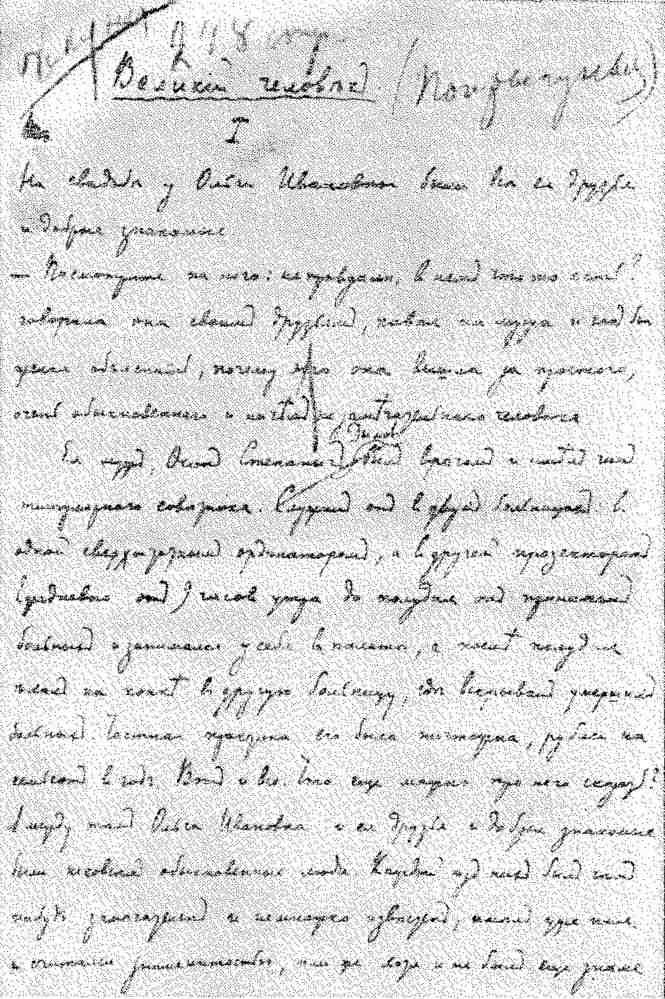 248 стр.
Великій человѣкъ
I
На свадьбѣ у Ольги Ивановны были всѣ ея друзья
и добрые знакомые
— Посмотрите на него: не правда ли, въ немъ что-то есть?
говорила она своимъ друзьямъ, кивая на мужа и какъ бы
желая объяснить, почему это она вышла за простого,
очень обыкновеннаго и ничѣмъ не замѣчательнаго человѣка
Ея мужъ, Осипъ Степанычъ Дымовъ былъ врачомъ и имѣлъ чинъ
титулярнаго совѣтника. Служилъ онъ въ двухъ больницахъ: въ
одной сверхштатнымъ ординаторомъ, а въ другой прозекторомъ
Ежедневно отъ 9 часовъ утра до полудня онъ принималъ
больныхъ и занимался у себя въ палатѣ, а послѣ полудня
ѣхалъ на конкѣ въ другую больницу, гдѣ вскрывалъ умершихъ
больныхъ. Частная практика его была ничтожна, рублей на
пятьсотъ въ годъ. Вотъ и все. Что еще можно про него сказать?
А между тѣмъ Ольга Ивановна и ея друзья и добрые знакомые
были не совсѣмъ обыкновенные люди. Каждый изъ нихъ былъ чѣмъ
нибудь замѣчателенъ и немножко извѣстенъ, имѣлъ уже имя
и считался знаменитостью, или же хотя и не былъ еще знаме